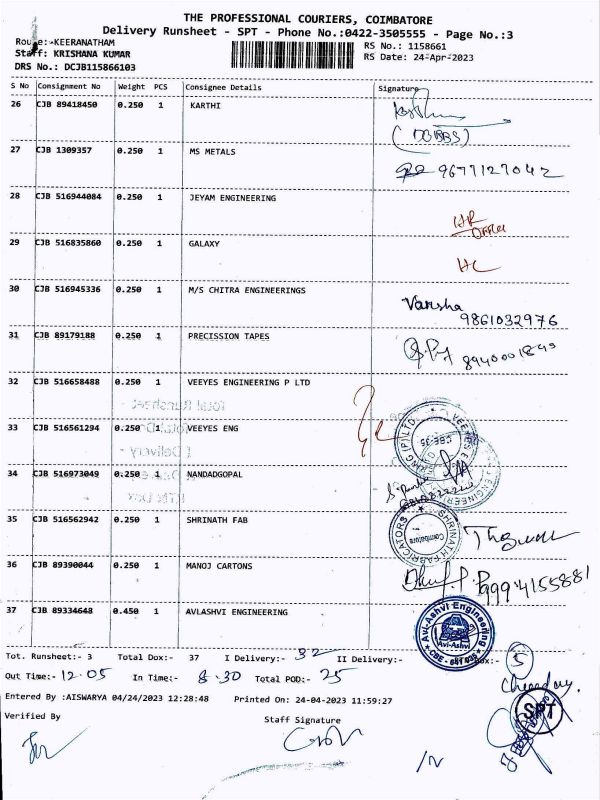 THE PROFESSIONAL COURIERS, COIMBATORE
Delivery Runsheet - SPT - Phone No.:0422-3505555 - Page No.:3
Route:-KEERANATHAM
RS No.: 1158661
Staff: KRISHANA KUMAR
RS Date: 24-Apr-2023
DRS No.: DCJB115866103
S No Consignment No Weight PCS Consignee Details Signature
26 CJB 89418450 0.250 1 KARTHI
27 CJB 1309357 0.250 1 MS METALS 9677127042
28 CJB 516944084 0.250 1 JEYAM ENGINEERING HR
29 CJB 516835860 0.250 1 GALAXY
30 CJB 516945336 0.250 1 M/S CHITRA ENGINEERINGS Varsha
9861032976
31 CJB 89179188 0.250 1 PRECISSION TAPES
32 CJB 516658488 0.250 1 VEEYES ENGINEERING P LTD
33 CJB 516561294 0.250 1 VEEYES ENG
34 CJB 516973049 0.250 1 NANDADGOPAL
35 CJB 516562942 0.250 1 SHRINATH FAB
SHRINATH FABRICATORS
Coimbatore
36 CJB 89390044 0.250 1 MANOJ CARTONS
37 CJB 89334648 0.450 1 AVLASHVI ENGINEERING
Avi-Ashvi Engineering
Avi-Ashvi
Tot. Runsheet:- 3 Total Dox:- 37 I Delivery:- 32 II Delivery:- 5
Out Time:- 12.05 In Time:- 8.30 Total POD:- 25
Entered By :AISWARYA 04/24/2023 12:28:48 Printed On: 24-04-2023 11:59:27
Verified By Staff Signature
SPT